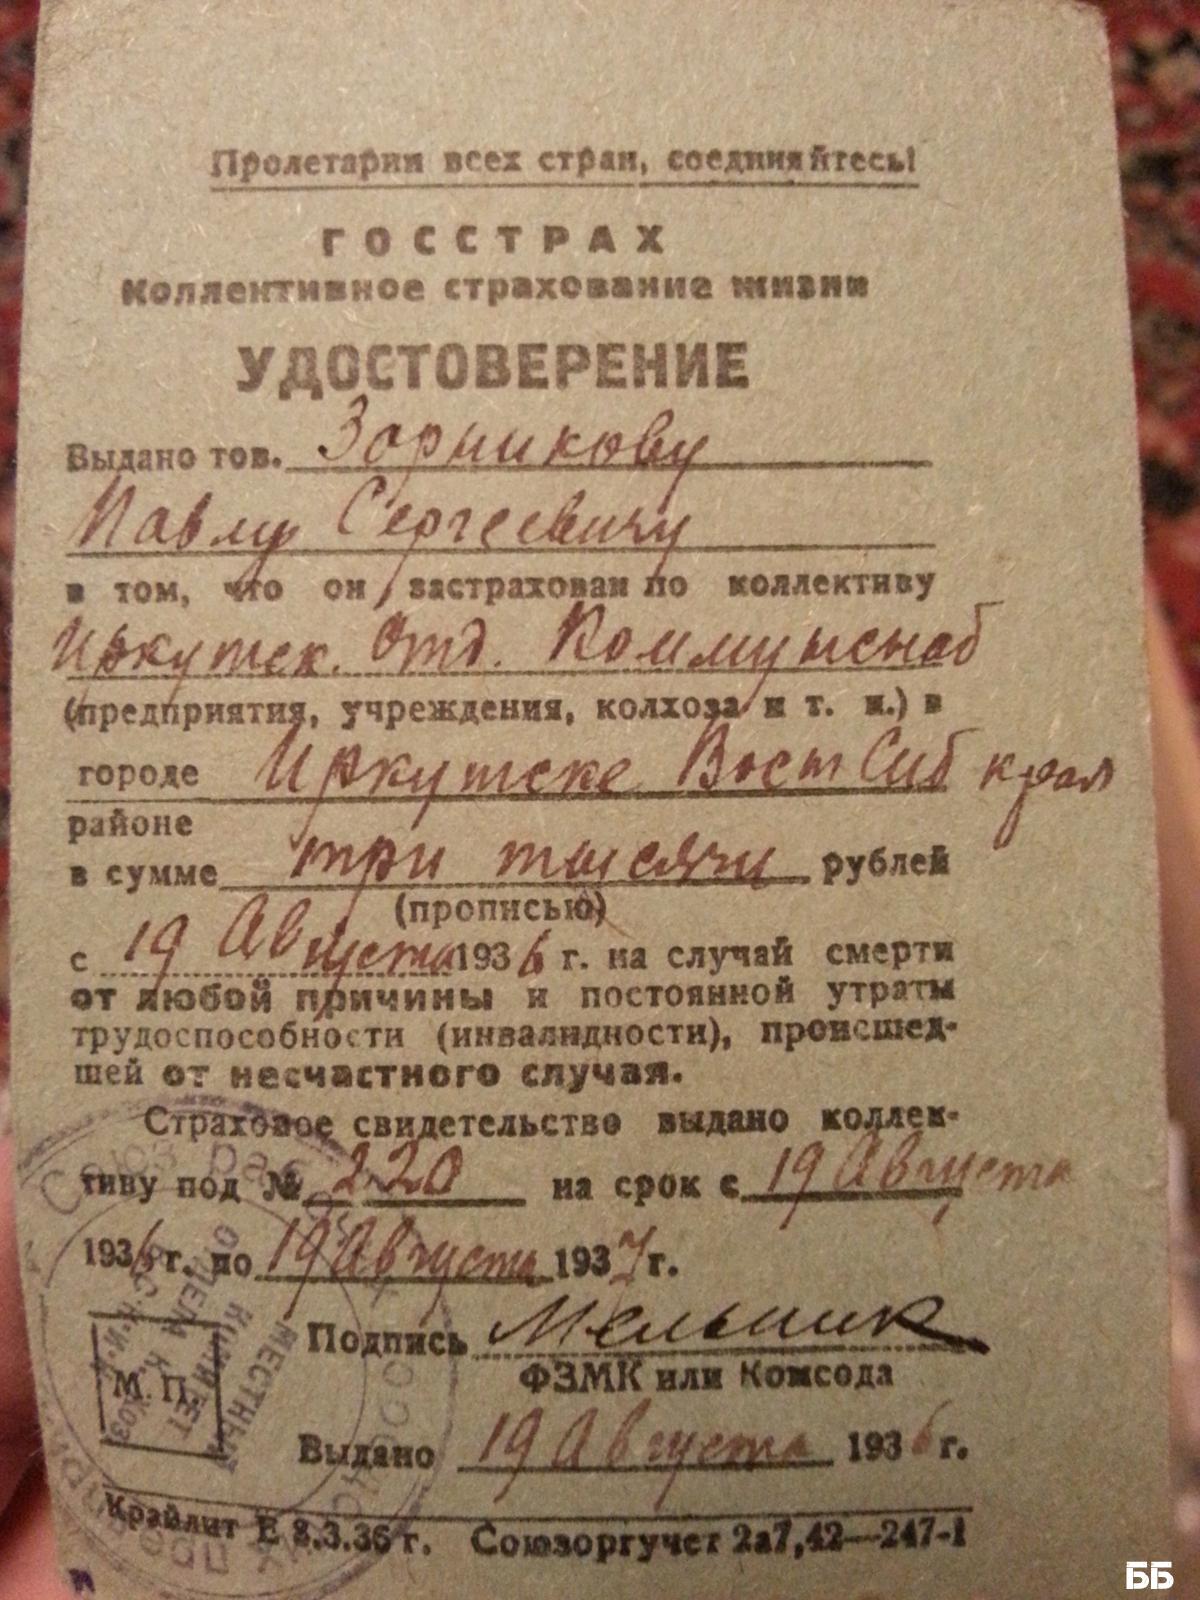 Пролетарии всех стран, соединяйтесь!
ГОССТРАХ
Коллективное страхование жизни
УДОСТОВЕРЕНИЕ
Выдано тов. Зорникову
Павлу Сергеевичу
в том, что он застрахован по коллективу
Иркутск. Отд. Коммунснаб
(предприятия, учреждения, колхоза и т. п.) в
городе Иркутске Вост Сиб края
районе
в сумме три тысячи рублей
(прописью)
с 19 Августа 1936 г. на случай смерти
от любой причины и постоянной утраты
трудоспособности (инвалидности), происшед-
шей от несчастного случая.
Страховое свидетельство выдано коллек-
тиву под № 220 на срок с 19 Августа
1936 г. по 19 Августа 1937 г.
Подпись Мельник
ФЗМК или Комсода
М. П.
МЕСТНЫЙ
КОМИТЕТ
Выдано 19 Августа 1936 г.
Крайлит Е 8.3.36 г. Союзоргучет 2а7,42—247-1
ББ